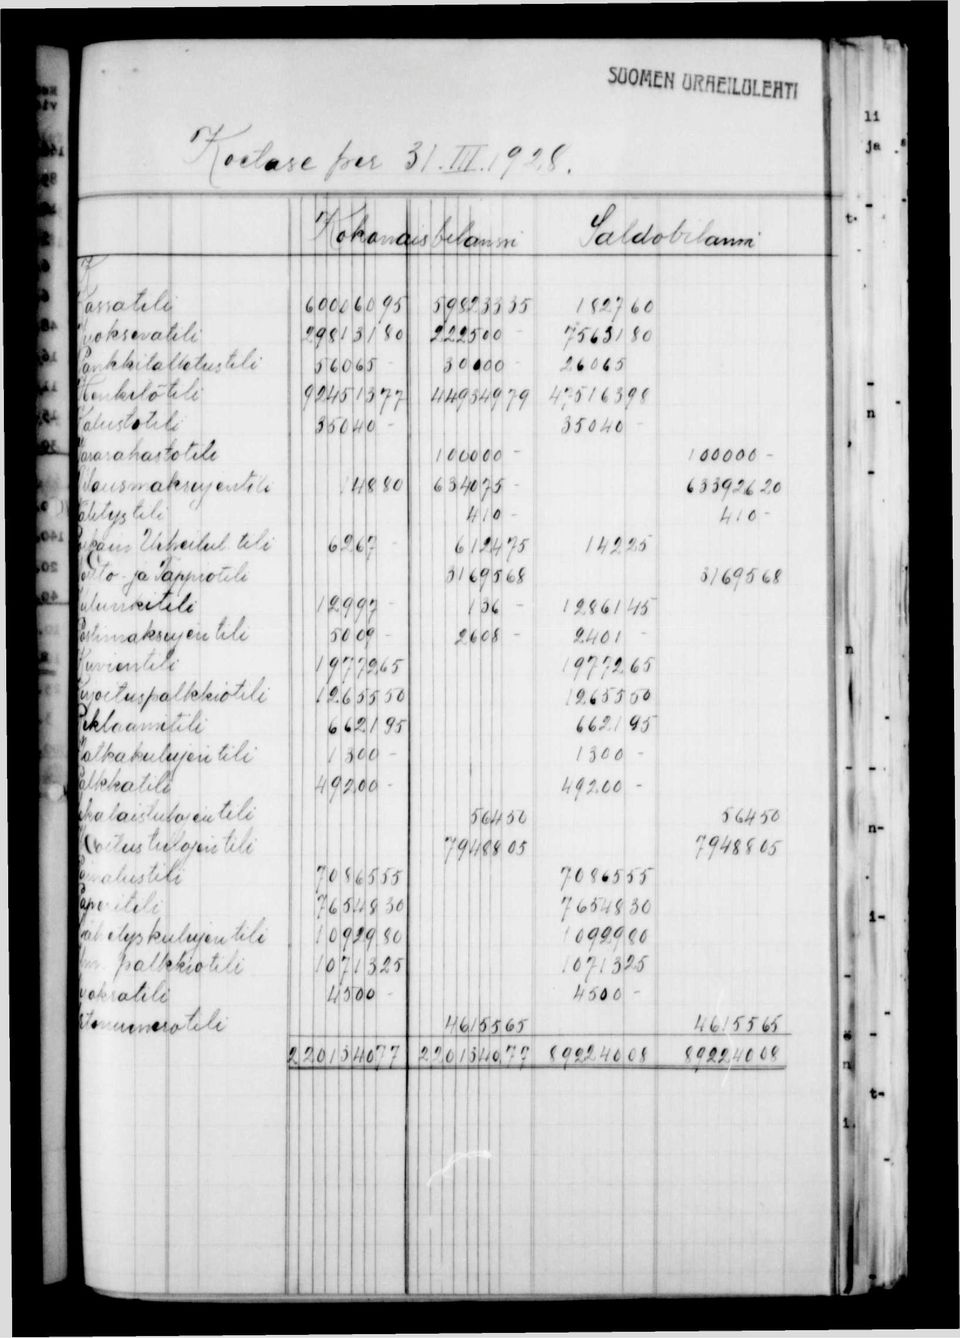 SUOMEN URHEILULEHTI
Koetase per 31.III.1928.
Kokonaisbilanssi Saldobilanssi
Kassatili 600060 95 598233 35 1827 60
Vuoksevatili 298131 80 222500 - 75631 80
Pankkitalletustili 56065 - 30000 - 26065
Henkilötili 924513 77 449349 79 475163 98
Kalustotili 35040 - 35040 -
Vararahastotili 100000 - 100000 -
Tilausmaksujentili 148 80 634075 - 633926 20
Välitystili 410 - 410 -
Poikain Urheilul. tili 6267 - 6124 75 142 25
Voitto- ja Tappiotili 31695 68 31695 68
Kulunkitili 12997 - 136 - 12861 45
Postimaksujen tili 5009 - 2608 - 2401 -
Kuvientili 19772 65 19772 65
Kirjoituspalkkiotili 12655 50 12655 50
Reklaamitili 6621 95 6621 95
Matkakulujen tili 1300 - 1300 -
Palkkatili 49200 - 49200 -
564 50 564 50
Ilmoitustulojen tili 79488 05 79488 05
Painatustili 70865 55 70865 55
Paperitili 76548 30 76548 30
Lähetyskulujen tili 10929 80 10929 80
palkkiotili 10713 25 10713 25
Vuokratili 4500 - 4500 -
Irtonumerotili 46155 65 46155 65
2201340 77 2201340 77 892240 08 892240 08